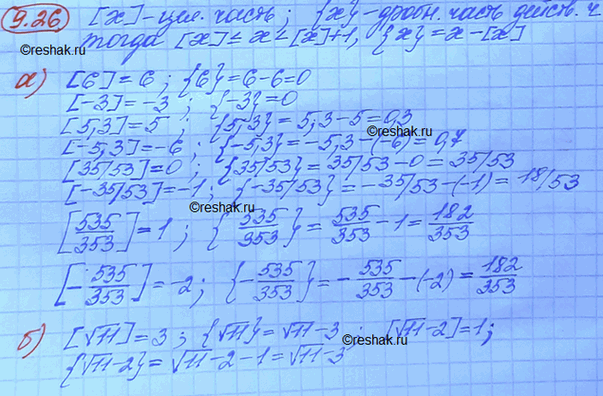 9.26 [x] - цел. часть; {x} - дробн. часть действ. ч.
тогда [x] ≤ x ≤ [x]+1, {x} = x - [x]
а) [6] = 6; {6} = 6-6=0
[-3] = -3; {-3} = 0
[5,3] = 5; {5,3} = 5,3-5 = 0,3
©Reshak.ru
[-5,3] = -6; {-5,3} = -5,3-(-6) = 0,7
[35/53] = 0; {35/53} = 35/53 - 0 = 35/53
[-35/53] = -1; {-35/53} = -35/53 - (-1) = 18/53
©Reshak.ru
[535/353] = 1; {535/353} = 535/353 - 1 = 182/353
[-535/353] = -2; {-535/353} = -535/353 - (-2) = 182/353
©Reshak.ru
б) [√11] = 3; {√11} = √11-3; [√11-2] = 1;
{√11-2} = √11-2-1 = √11-3